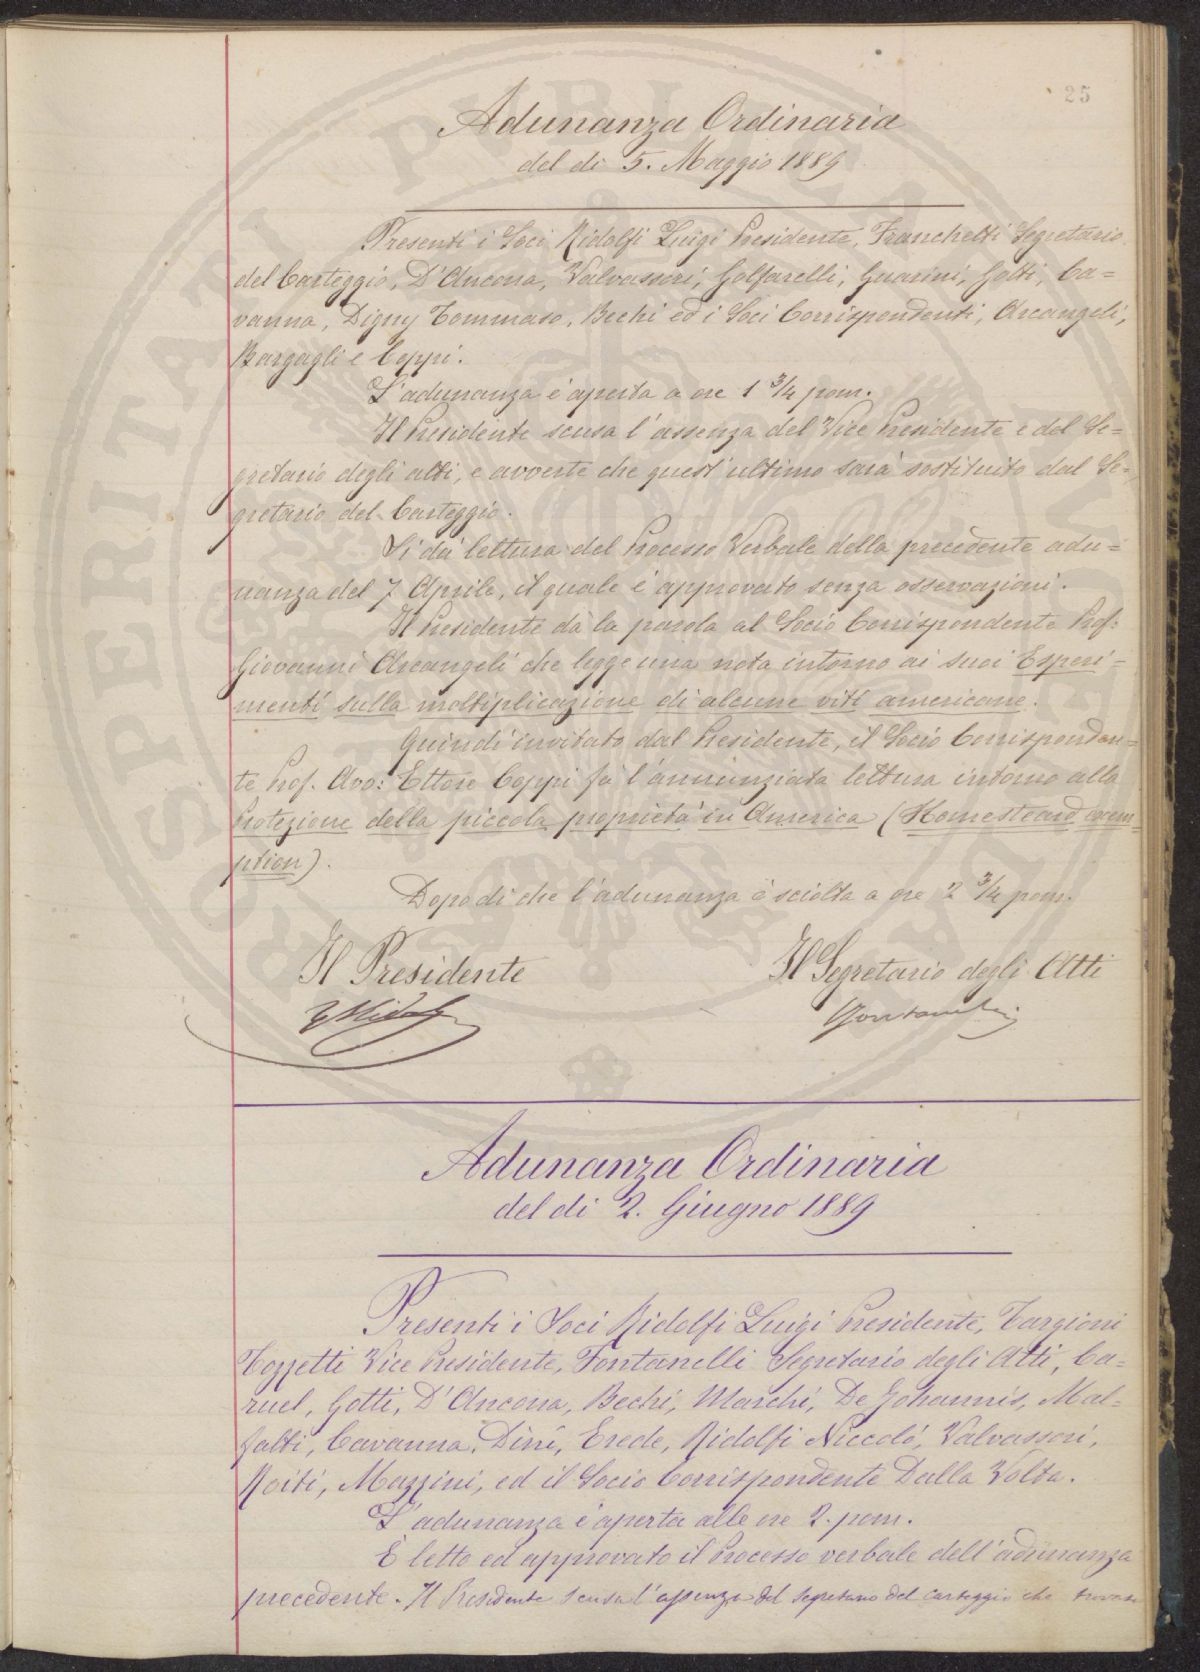 25
Adunanza Ordinaria
del di 5. Maggio 1889
Presenti i Soci Ridolfi Luigi Presidente, Franchetti Segretario
del Carteggio, D'Ancona, Valvassori, Golfarelli, Guarini, Gotti, Ca=
vanna, Digny Tommaso, Bechi ed i Soci Corrispondenti, Arcangeli,
Bargagli e Coppi.
L'adunanza è aperta a ore 1 3/4 pom.
Il Presidente scusa l'assenza del Vice Presidente e del Se=
gretario degli atti, e avverte che quest'ultimo sarà sostituito dal Se=
gretario del Carteggio.
Si dà lettura del Processo Verbale della precedente adu=
nanza del 7 Aprile, il quale è approvato senza osservazioni.
Il Presidente dà la parola al Socio Corrispondente Prof:
Giovanni Arcangeli che legge una nota intorno ai suoi Esperi=
menti sulla moltiplicazione di alcune viti americane.
Quindi invitato dal Presidente, il Socio Corrisponden=
te Prof. Avv: Ettore Coppi fà l'annunziata lettura intorno alla
Protezione della piccola proprietà in America (Homesteard exem=
ption).
Dopo di che l'adunanza è sciolta a ore 2 3/4 pom.
Il Presidente
Il Segretario degli Atti
L Ridolfi
Fontanelli
Adunanza Ordinaria
del di 2. Giugno 1889
Presenti i Soci Ridolfi Luigi Presidente, Targioni
Tozzetti Vice Presidente, Fontanelli Segretario degli Atti, Ca=
ruel, Gotti, D'Ancona, Bechi, Marchi, De Johannis, Mal=
fatti, Cavanna, Dini, Erede, Ridolfi Niccolò, Valvassori,
Roiti, Mazzini, ed il Socio Corrispondente Dalla Volta.
L'adunanza è aperta alle ore 2. pom.
È letto ed approvato il Processo verbale dell'adunanza
precedente. Il Presidente scusa l'assenza del Segretario del Carteggio che trovasi
SPERITATI PUBLICA